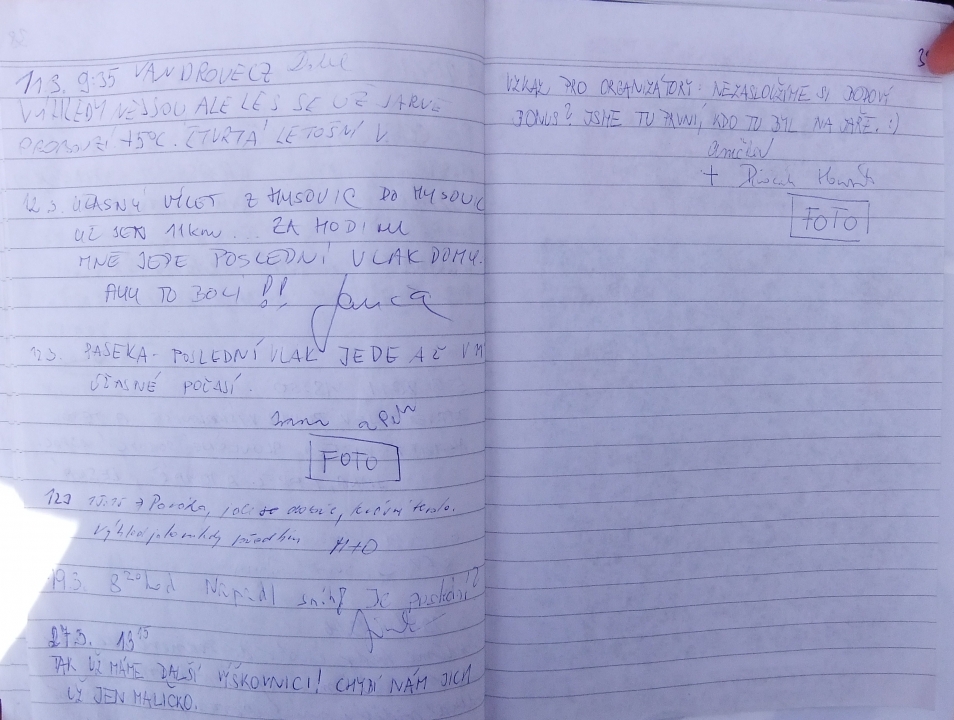 11.3. 9:35 VANDROVECZ
VÝHLEDY NEJSOU ALE LES SE UŽ JARNĚ
PROBOUZÍ +5°C. ČTVRTÁ LETOŠNÍ V.
12.3. ÚŽASNÝ VÝLET Z HUSOVIC DO HUSOVIC
UŽ JEN 11km... ZA HODINU
MNĚ JEDE POSLEDNÍ VLAK DOMU.
AUU TO BOLÍ !!
Jančа
12.3. PASEKA - POSLEDNÍ VLAK JEDE AŽ V
ÚŽASNÉ POČASÍ.
FOTO
12.3 15:15
výhled M+O
19.3. 8 20 hod Napadl sníh Je
27.3. 13 15
TAK UŽ MÁME DALŠÍ VÝŠKOVNICI! CHYBÍ NÁM JICH
UŽ JEN MALIČKO.
VZKAZ PRO ORGANIZÁTORY: NEZASLOUŽÍME SI BODOVÝ
BONUS? JSME TU PRVNÍ, KDO TU BYL NA JAŘE. :)
+
FOTO